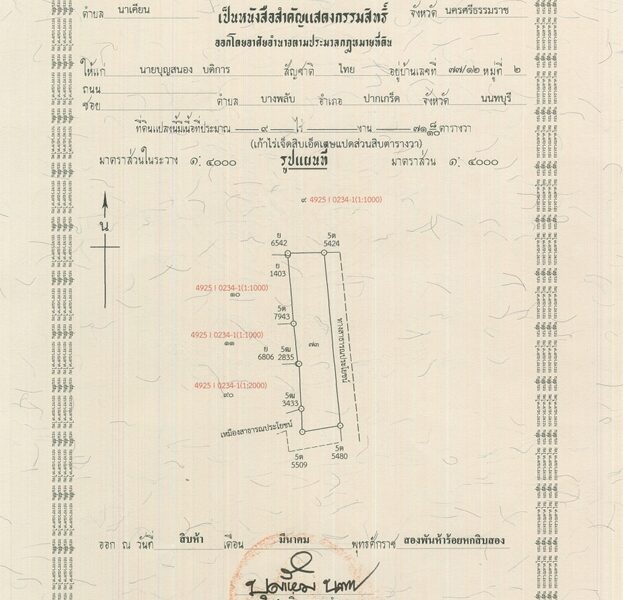 ตำบล นาเคียน เป็นหนังสือสำคัญแสดงกรรมสิทธิ์ จังหวัด นครศรีธรรมราช
ออกโดยอาศัยอำนาจตามประมวลกฎหมายที่ดิน
ให้แก่ นายบุญสนอง บดิการ สัญชาติ ไทย อยู่บ้านเลขที่ ๗๗/๑๒ หมู่ที่ ๒
ถนน
ซอย ตำบล บางพลับ อำเภอ ปากเกร็ด จังหวัด นนทบุรี
ที่ดินแปลงนี้มีเนื้อที่ประมาณ ๙ ไร่ งาน ๗๑ ๘/๑๐ ตารางวา
(เก้าไร่เจ็ดสิบเอ็ดเศษแปดส่วนสิบตารางวา)
มาตราส่วนในระวาง ๑: ๔๐๐๐ รูปแผนที่ มาตราส่วน ๑: ๔๐๐๐
๙ 4925 I 0234-1(1:1000)
น
ย
6542
5ต
5424
ย
1403
4925 I 0234-1(1:1000)
๑๐
5ต
7943
4925 I 0234-1(1:1000)
๑๑
ย
6806
5ฒ
2835
๗๓
ทางสาธารณประโยชน์
4925 I 0234-1(1:2000)
๙๐
5ฒ
3433
เหมืองสาธารณประโยชน์
5ต
5509
5ต
5480
ออก ณ วันที่ สิบห้า เดือน มีนาคม พุทธศักราช สองพันห้าร้อยหกสิบสอง